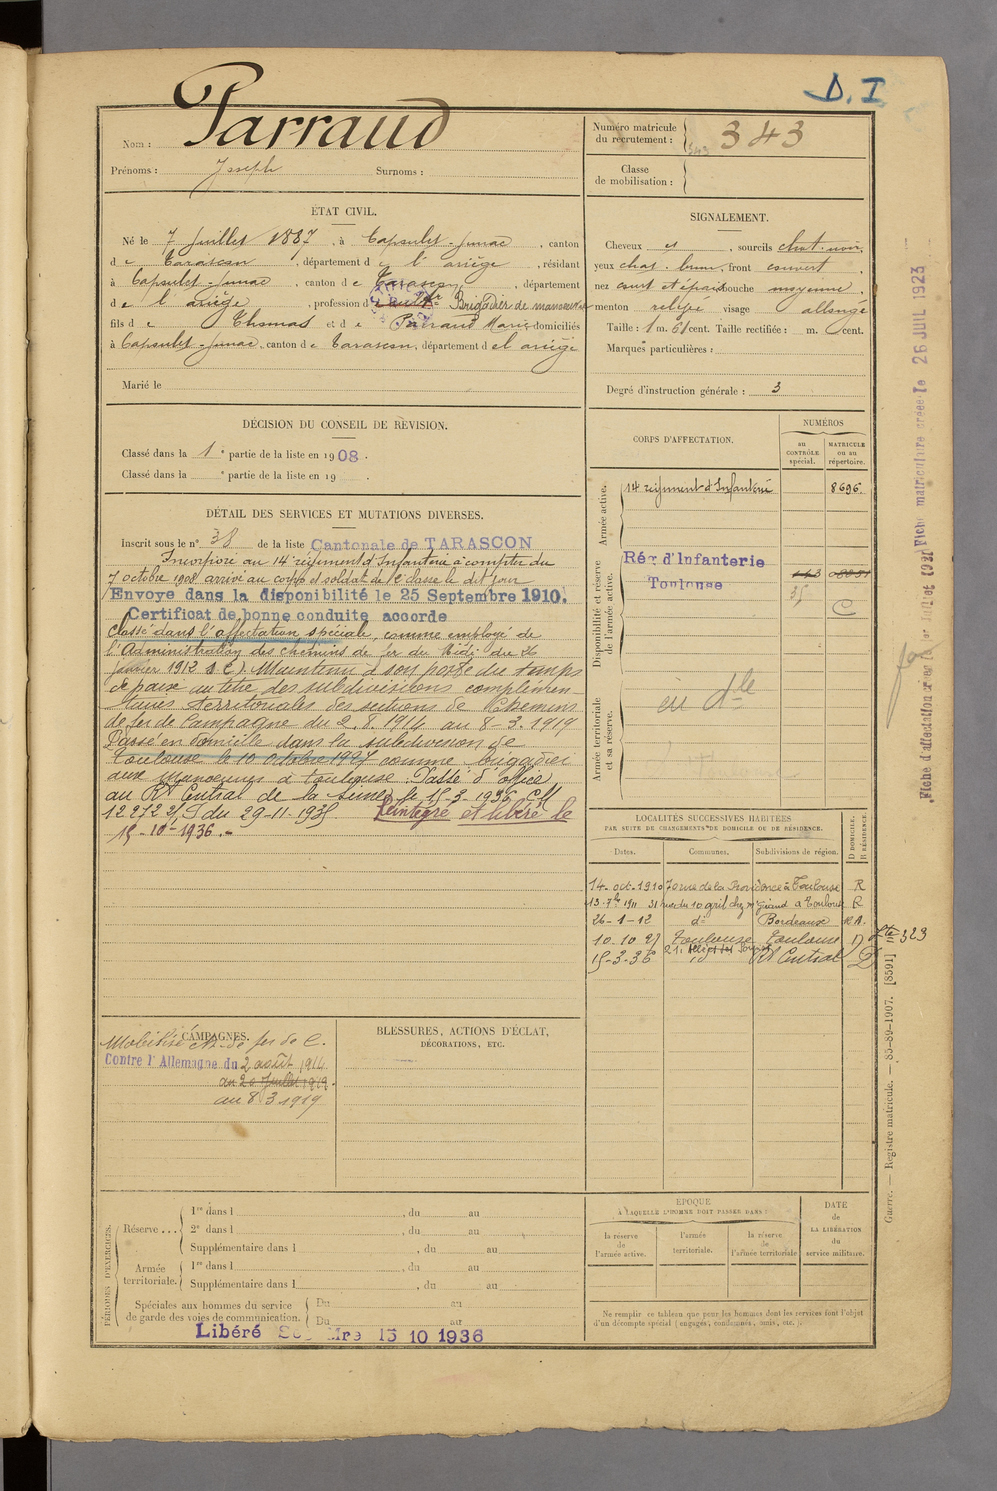 D. I
Nom : Parraud
Prénoms : Joseph Surnoms :
Numéro matricule du recrutement : 343
Classe de mobilisation :
ÉTAT CIVIL.
Né le 7 Juillet 1887, à Capoulet-Junac, canton
de Tarascon, département de l'ariège, résidant
à Capoulet-Junac, canton de Tarascon, département
de l'ariège, profession d Brigadier de manoeuvres
fils de Thomas et de Parraud Marie domiciliés
à Capoulet-Junac, canton de Tarascon, département de l'ariège
Marié le
SIGNALEMENT.
Cheveux et, sourcils chat. noir,
yeux chat. brun, front couvert,
nez court et épais bouche moyenne,
menton relevé visage allongé
Taille : 1 m. 61 cent. Taille rectifiée : m. cent.
Marques particulières :
Degré d'instruction générale : 3
DÉCISION DU CONSEIL DE RÉVISION.
Classé dans la 1e partie de la liste en 1908.
Classé dans la e partie de la liste en 19
DÉTAIL DES SERVICES ET MUTATIONS DIVERSES.
Inscrit sous le n° 38 de la liste Cantonale de TARASCON
Incorporé au 14e régiment d'Infanterie à compter du
7 octobre 1908 arrivé au corps et soldat de 2e classe le dit jour
Envoyé dans la disponibilité le 25 Septembre 1910.
Certificat de bonne conduite accordé
Classé dans l'affectation spéciale, comme employé de
l'Administration des chemins de fer du Midi du 26
janvier 1912. Maintenu à son poste du temps
de paix au titre des subdivisions complémen
taires territoriales des sections de Chemins
de fer de Campagne du 2.8.1914 au 8-3.1919
Passé en domicile dans la subdivision de
Toulouse le 10 octobre 1927 comme brigadier
aux manoeuvres à Toulouse. Passé d'office
au Rt Central de la Seine le 15-3-1936 CM
12272 du 29-11-1935. Réintégré et libéré le
15-10-1936.-
CORPS D'AFFECTATION.
NUMÉROS
au CONTRÔLE spécial.
MATRICULE ou au répertoire.
Armée active.
14e régiment d'Infanterie 8696
Disponibilité et réserve de l'armée active.
Rég d'Infanterie
Toulouse
35
C
Armée territoriale et sa réserve.
en dle
LOCALITÉS SUCCESSIVES HABITÉES
PAR SUITE DE CHANGEMENTS DE DOMICILE OU DE RÉSIDENCE.
Dates. Communes. Subdivisions de région. D DOMICILE. R RÉSIDENCE.
14-oct-1910 7 rue de la Providence à Toulouse R
13-7bre 1911 31 rue du 10 avril chez Mr Giraud à Toulouse R
26-1-12 do Bordeaux R A.
10.10 27 Toulouse Toulouse D
15-3-36 Rt Central D
Lte 323
CAMPAGNES.
Mobilisé fer de C.
Contre l'Allemagne du 2 août 1914
au 20 Juillet 1919.
au 8 3 1919
BLESSURES, ACTIONS D'ÉCLAT,
DÉCORATIONS, ETC.
PÉRIODES D'EXERCICES.
Réserve... 1re dans l , du au
2e dans l , du au
Supplémentaire dans l , du au
Armée territoriale. 1re dans l , du au
Supplémentaire dans l , du au
Spéciales aux hommes du service Du au
de garde des voies de communication. Du au
Libéré 15 10 1936
ÉPOQUE
À LAQUELLE L'HOMME DOIT PASSER DANS :
la réserve de l'armée active.
l'armée territoriale.
la réserve de l'armée territoriale
DATE de LA LIBÉRATION du service militaire.
Ne remplir ce tableau que pour les hommes dont les services font l'objet
d'un décompte spécial (engagés, condamnés, omis, etc.).
Fiche matriculaire créée le 26 JUIL 1923
Guerre. — Registre matricule. — 85-89-1907. [8591]